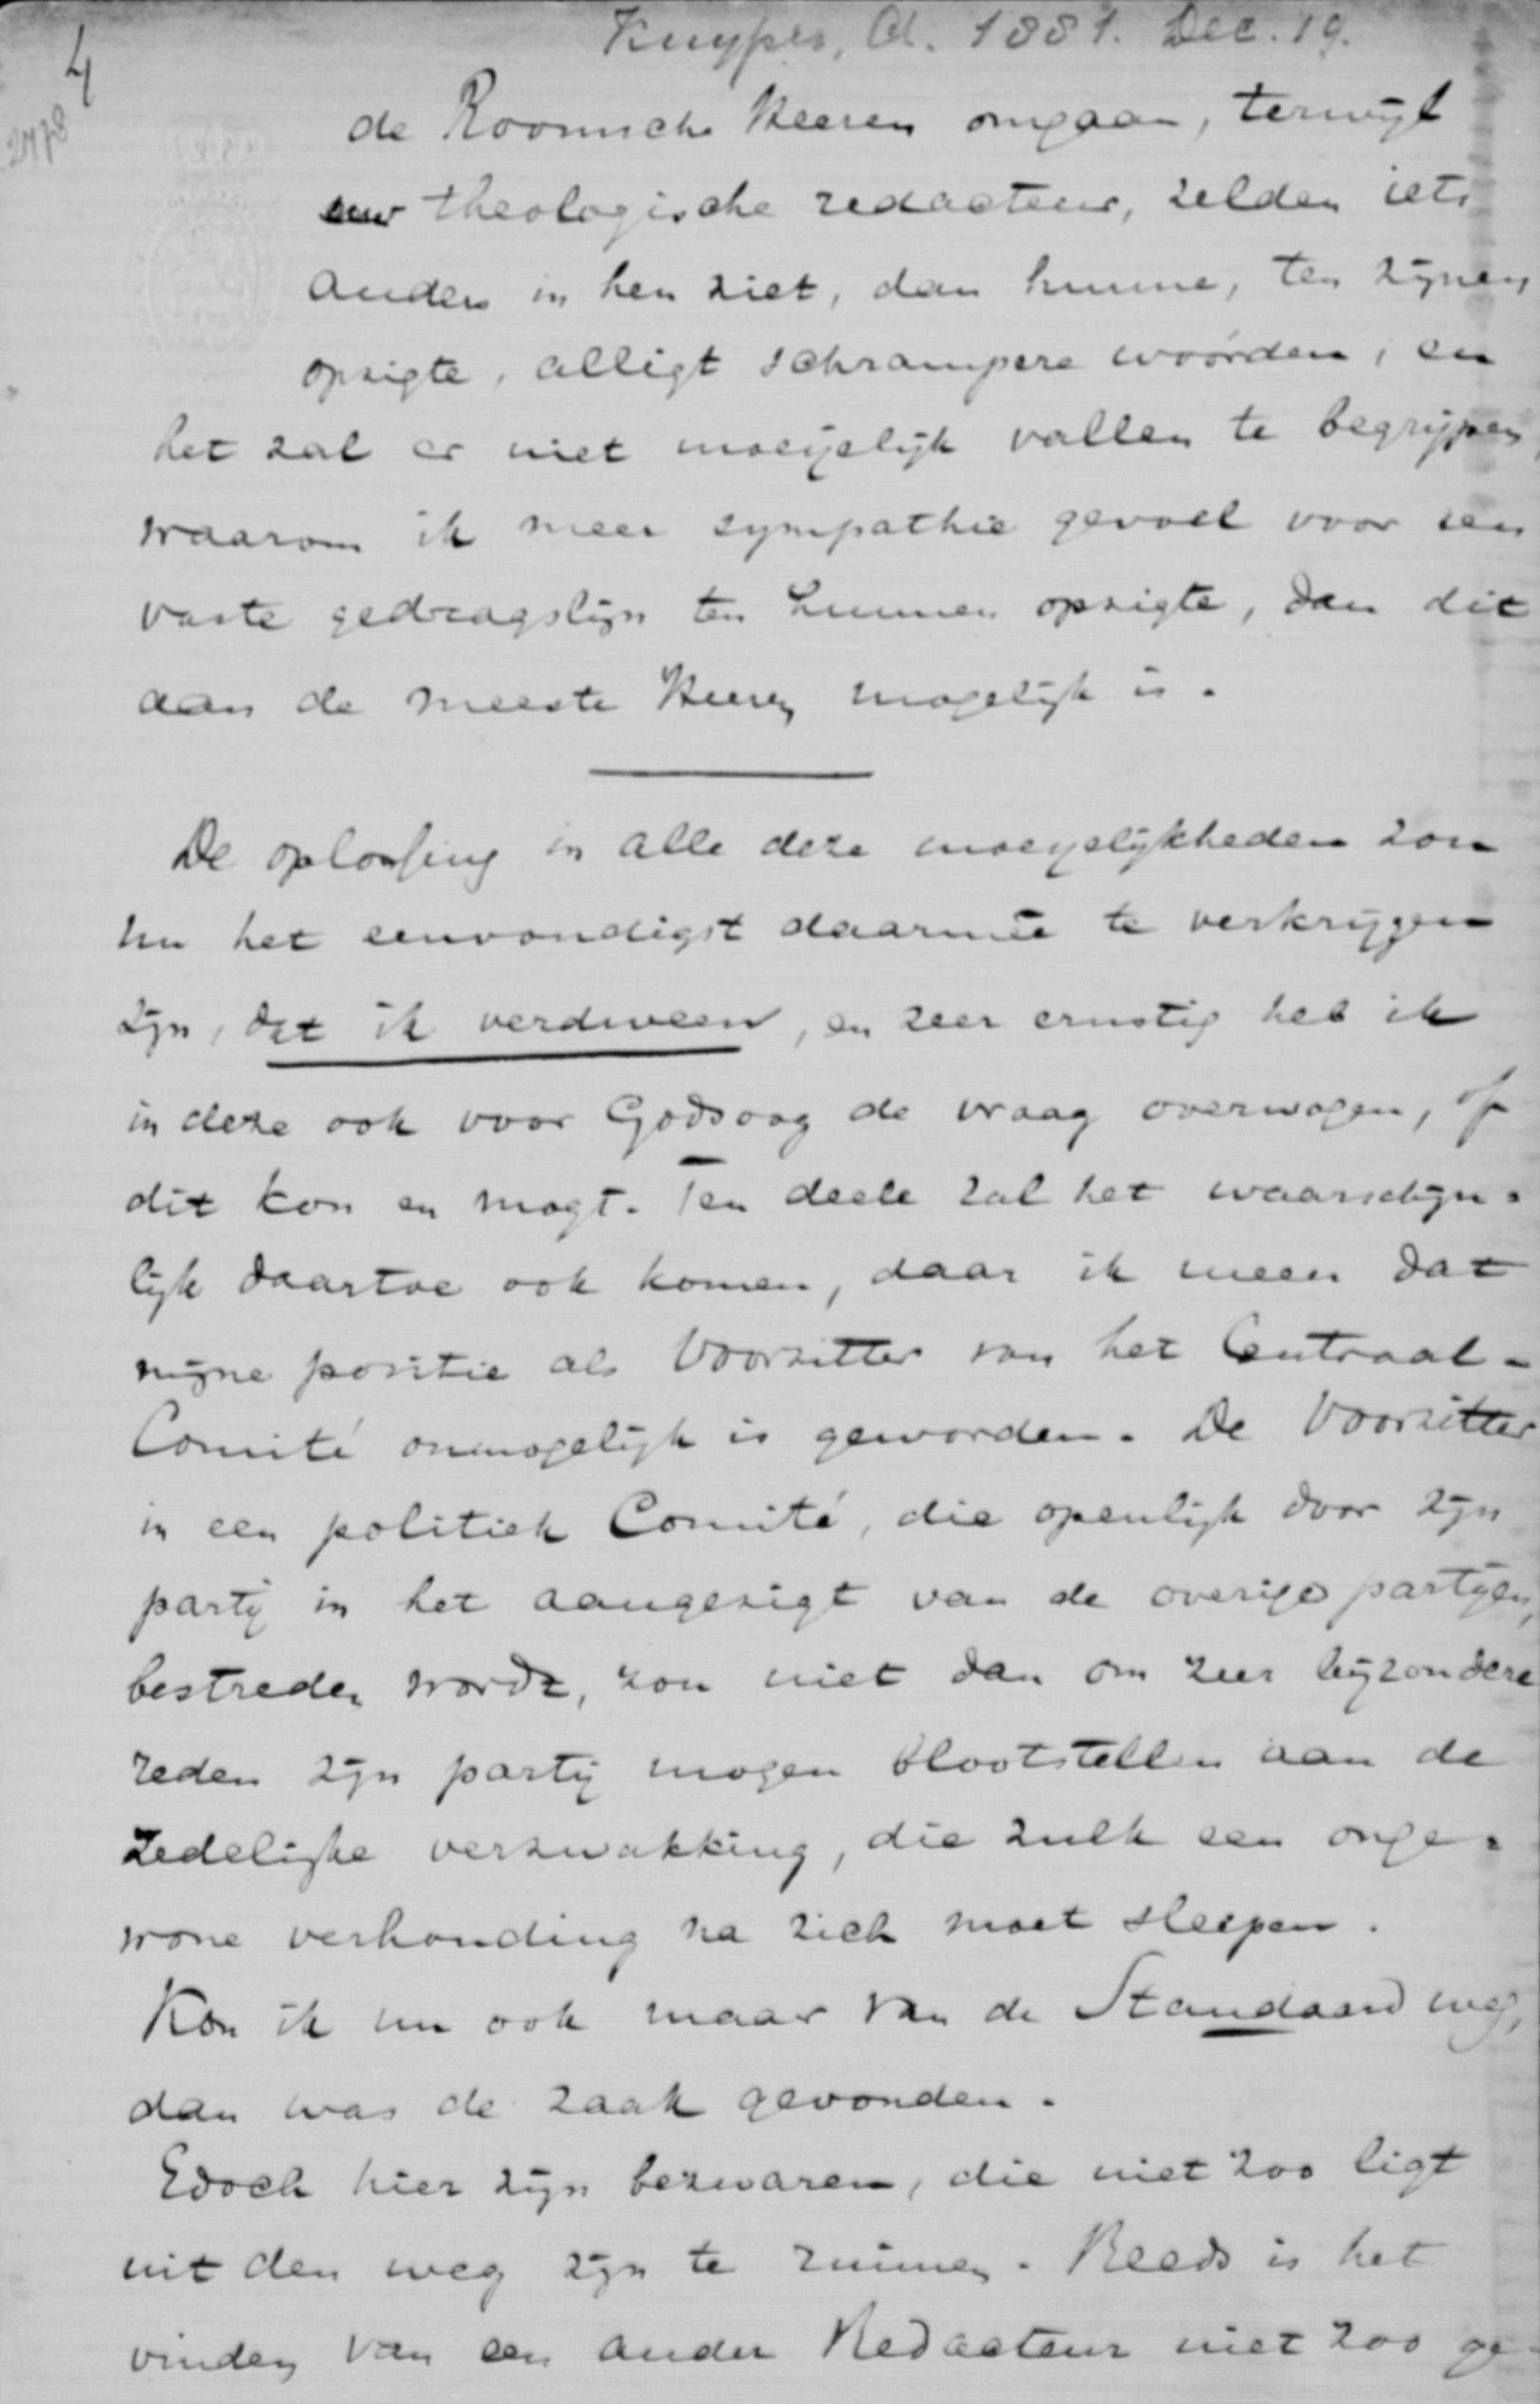 Kuyper, A. 1881. Dec. 19.
4
2478
de Roomsche Heeren omgaan, terwijl
een theologische redacteur, zelden iets
anders in hen ziet, dan hunne, ten zijnen
opzigte, alligt schrampere woorden, en
het zal er niet moeyelijk vallen te begrijpen,
waarom ik meer sympathie gevoel voor een
vaste gedragslijn ten hunnen opzigte, dan dit
aan de meeste Heeren mogelijk is.
De oplossing in alle deze moeyelijkheden zou
nu het eenvoudigst daarmeê te verkrijgen
zijn, dat ik verdween, en zeer ernstig heb ik
in deze ook voor Godsoog de vraag overwogen, of
dit kon en mogt. Ten deele zal het waarschijn=
lijk daartoe ook komen, daar ik meen dat
mijne positie als Voorzitter van het Centraal-
Comité onmogelijk is geworden. De Voorzitter
in een politiek Comité, die openlijk door zijn
partij in het aangezigt van de overige partijen,
bestreden wordt, zou niet dan om zeer bijzondere
reden zijn partij mogen blootstellen aan de
zedelijke verzwakking, die zulk een onge=
wone verhouding na zich moet sleepen.
Kon ik nu ook maar van de Standaard weg,
dan was de zaak gevonden.
Edoch hier zijn bezwaren, die niet zoo ligt
uit den weg zijn te ruimen. Reeds is het
vinden van een ander Redacteur niet zoo ge-